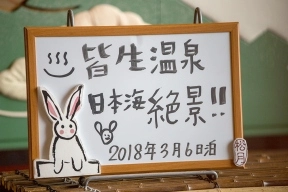 皆生温泉
日本海絶景!!
2018年3月6日泊
松月